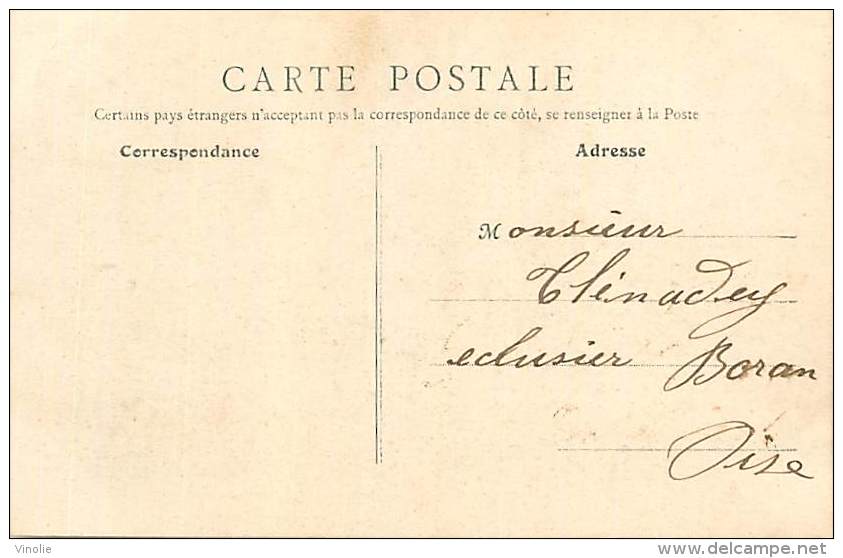 CARTE POSTALE
Certains pays étrangers n'acceptant pas la correspondance de ce côté, se renseigner à la Poste
Correspondance
Adresse
Monsieur
eclusier Boran
Oise
Vinolie
www.delcampe.net